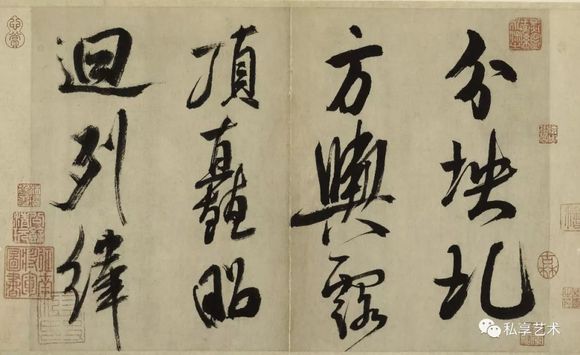 分坱圠
方輿露
頂矗昭
迴列緯
私享艺术